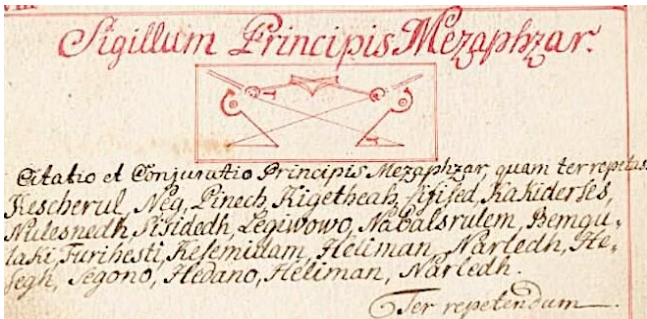 Sigillum Principis Mezaphzar.
Citatio et Conjuratio Principis Mezaphzar, quam ter repitas.
Kescherul, Neg, Pinech, Kigetheah, Sifised, Kakiderses,
Nulesnedh, Sisidedh, Legiwowo, Nabalsrulem, Bemgu-
laki, Furihesti, Kesemidam, Heliman, Narledh, He-
segh, Segono, Hedano, Heliman, Narledh.
Ter repetendum